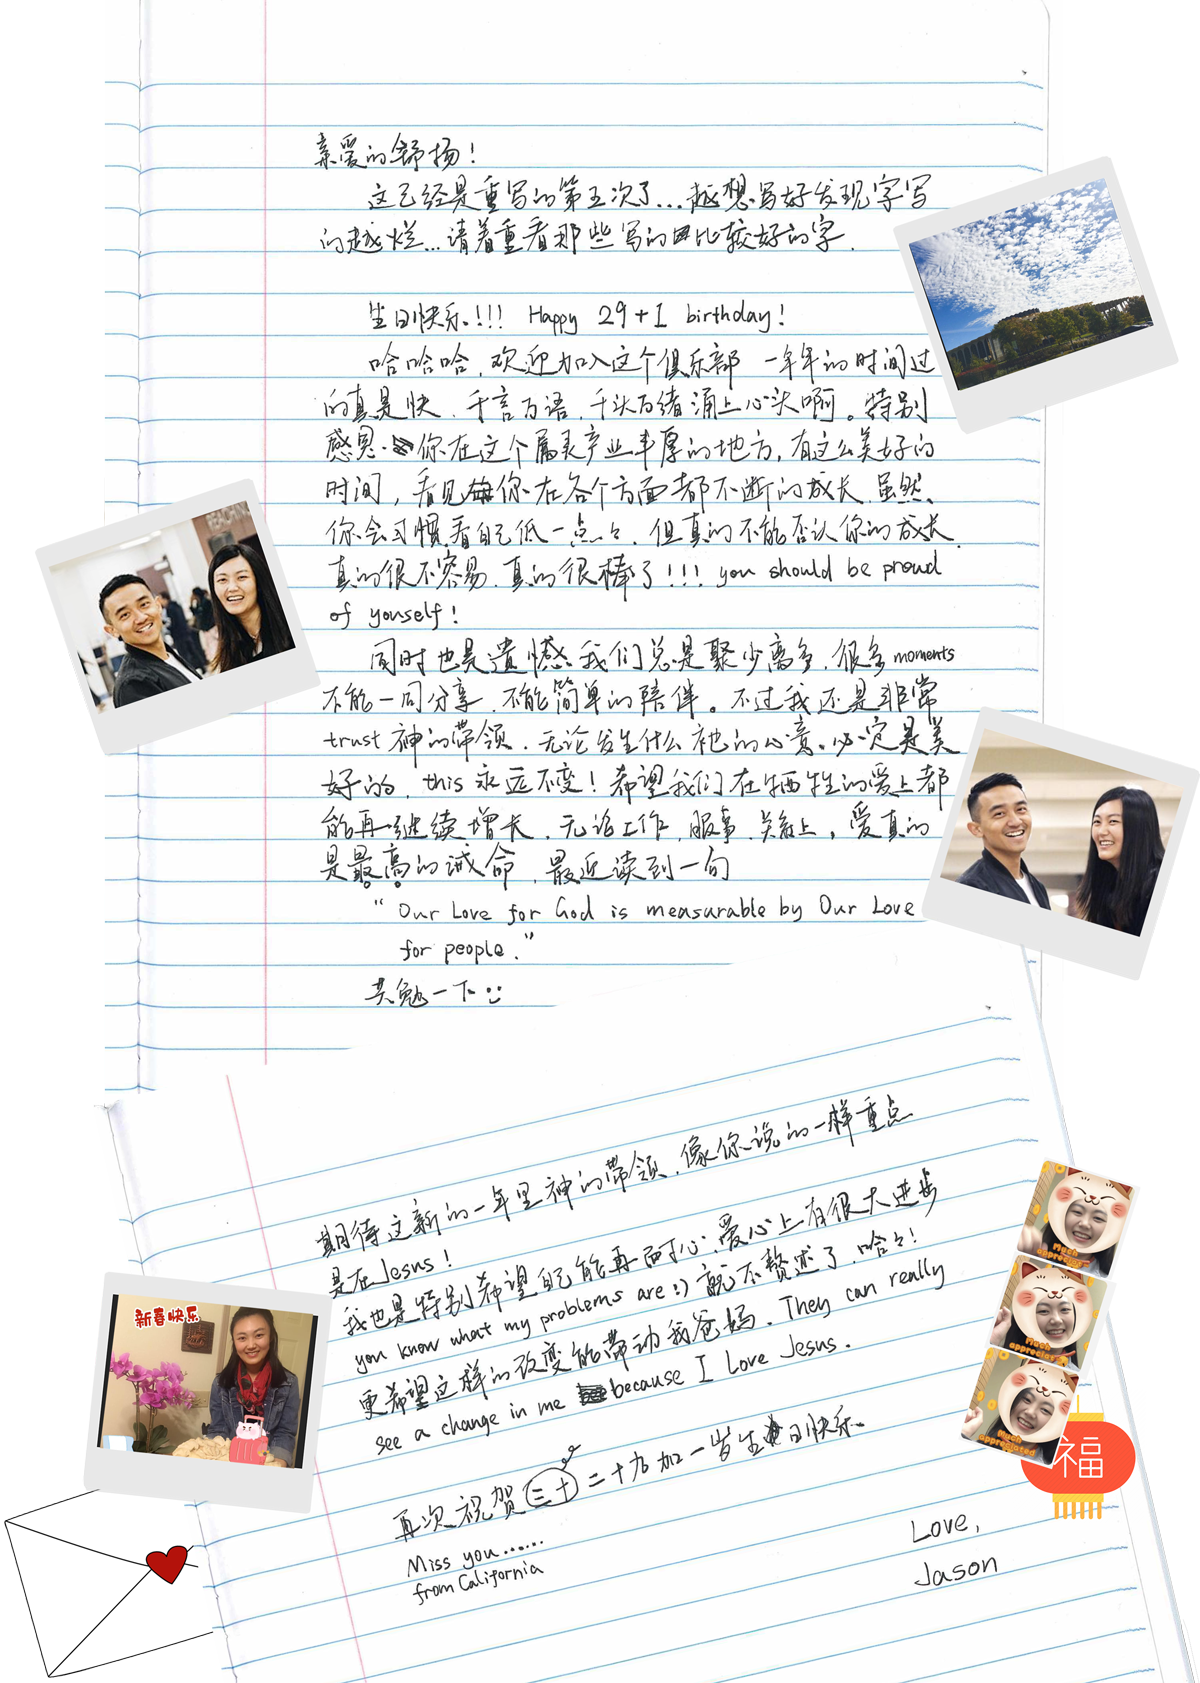 亲爱的舒扬！
这已经是重写的第五次了...越想写好发现字写
的越烂...请着重看那些写的比较好的字.
生日快乐!!! Happy 29+1 birthday!
哈哈哈，欢迎加入这个俱乐部 一年年的时间过
的真是快，千言万语，千头万绪涌上心头啊。特别
感恩.你在这个属灵产业丰厚的地方，有这么美好的
时间，看见你在各个方面都不断的成长.虽然
你会习惯看自己低一点点，但真的不能否认你的成长
真的很不容易.真的很棒了!!! you should be proud
of youself!
同时也是遗憾我们总是聚少离多.很多moments
不能一同分享.不能简单的陪伴。不过我还是非常
trust 神的带领.无论发生什么祂的心意必定是美
好的. this 永远不变！希望我们在牺牲的爱上都
能再继续增长.无论工作,服事,关系上,爱真的
是最高的诫命，最近读到一句
"Our Love for God is measurable by Our Love
for people."
共勉一下
期待这新的一年里神的带领.像你说的一样重点
是在Jesus!
我也是特别希望自己能再耐心,爱心上有很大进步
you know what my problems are:) 就不赘述了.哈哈!
更希望这样的改变能带动我爸妈. They can really
see a change in me because I Love Jesus.
再次祝贺三十二十九加一岁生日快乐.
Miss you......
from California
Love,
Jason
TEACHING
新春快乐
Much
appreciated
Much
appreciated
Much
appreciated
福